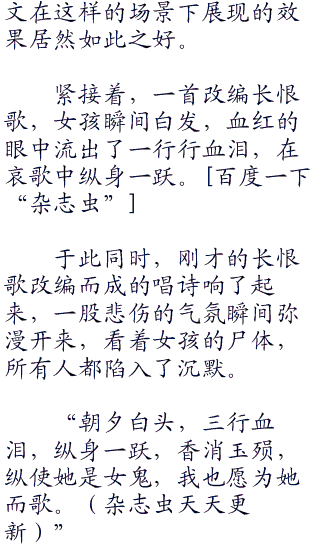 文在这样的场景下展现的效
果居然如此之好。
紧接着，一首改编长恨
歌，女孩瞬间白发，血红的
眼中流出了一行行血泪，在
哀歌中纵身一跃。[百度一下
“杂志虫”]
于此同时，刚才的长恨
歌改编而成的唱诗响了起
来，一股悲伤的气氛瞬间弥
漫开来，看着女孩的尸体，
所有人都陷入了沉默。
“朝夕白头，三行血
泪，纵身一跃，香消玉殒，
纵使她是女鬼，我也愿为她
而歌。（杂志虫天天更
新）”